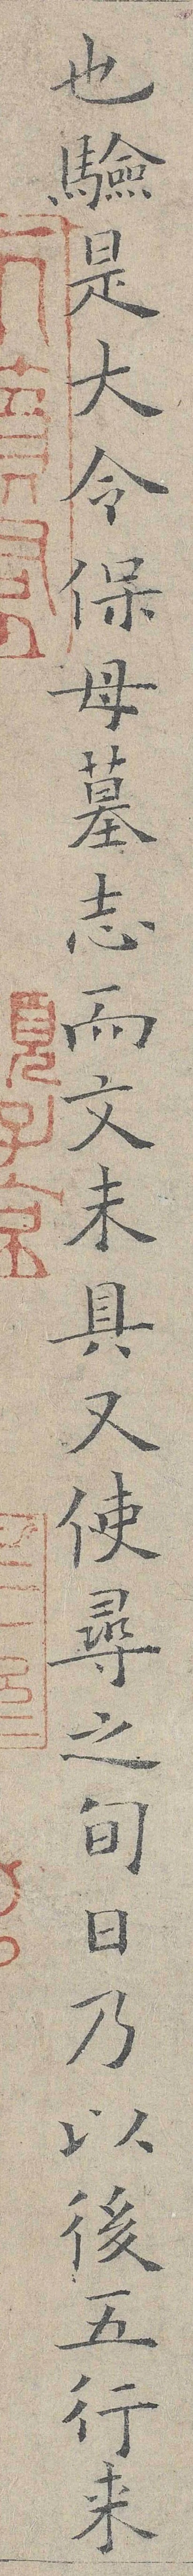 也驗是大令保母墓志而文未具又使尋之旬日乃以後五行来